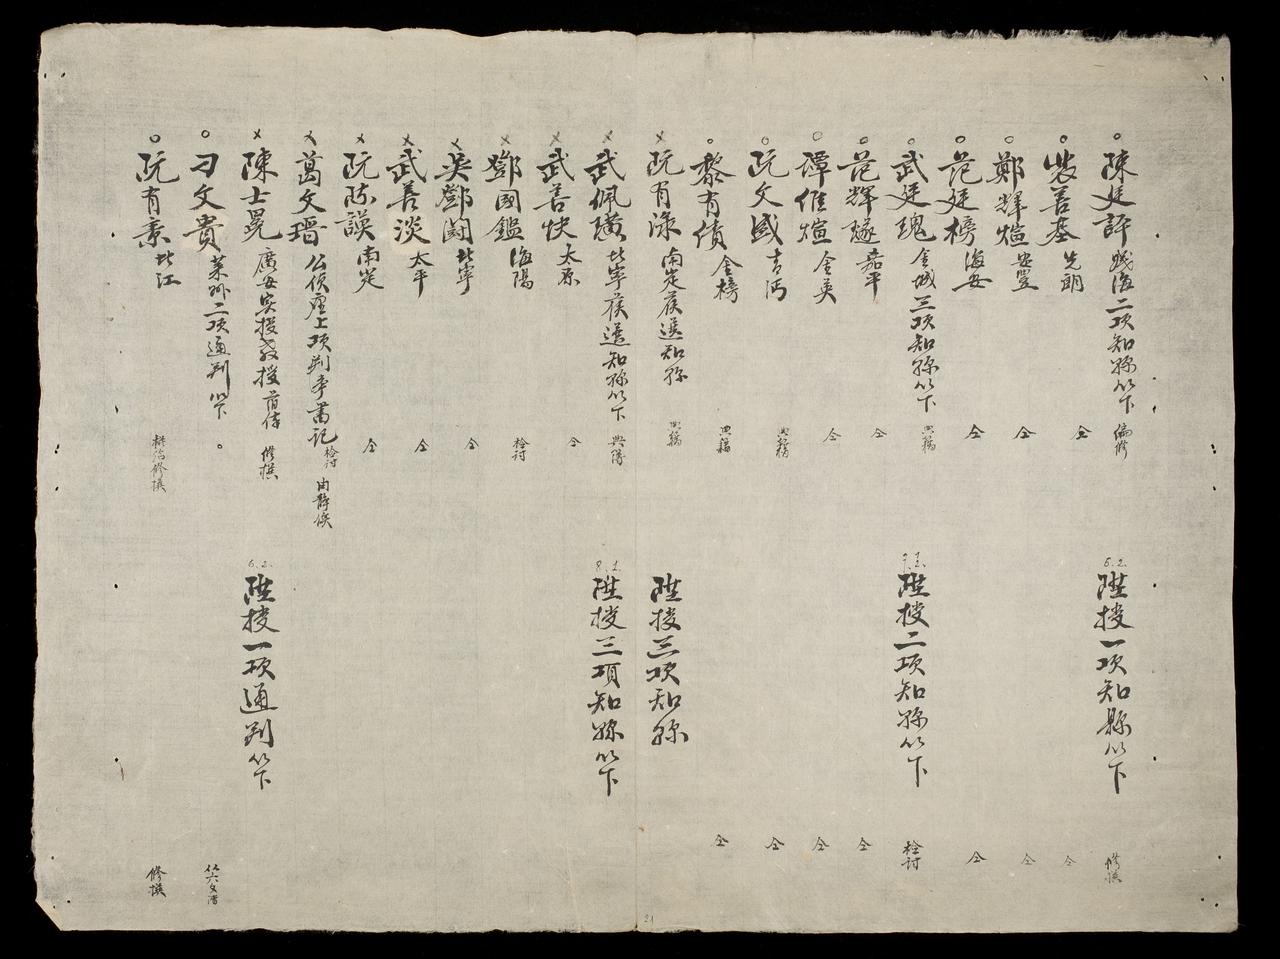 陳廷評 踐海二項知縣以下 偏修 6.2. 陞授一項知縣以下 修撰
裴善基 先朗 仝 仝
鄭輝煊 安豐 仝 仝
范廷榜 海安 仝 仝
武廷瑰 金城三項知縣以下 典籍 7.2. 陞授二項知縣以下 檢討
范輝 嘉平 仝 仝
譚惟煊 金英 仝 仝
阮文盛 青沔 典籍 仝
黎有債 金榜 典籍 仝
阮有 南定 知縣 典籍 陞授三項知縣
武佩璜 北寧 知縣以下 典簿 8.1. 陞授三項知縣以下
武善快 太原 仝
鄧國鑑 海陽 檢討
吳鄧 北寧 仝
武善淡 太平 仝
阮陈謨 南定 仝
葛文瑨 上項判事書記 檢討
陳士冕 廣安實授教授 修撰 6.2. 陞授一項通判以下
刁文貴 萊州二項通判以下
阮有素 北江 修撰 修撰
21